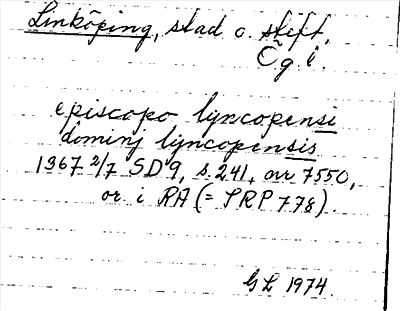 Linköping, stad o. stift,
Ög l.
episcopo lyncopensi
dominj lyncopensis
1367 2/7 SD 9, s. 241, nr 7550,
or i RA (= SRP 778).
GL 1974